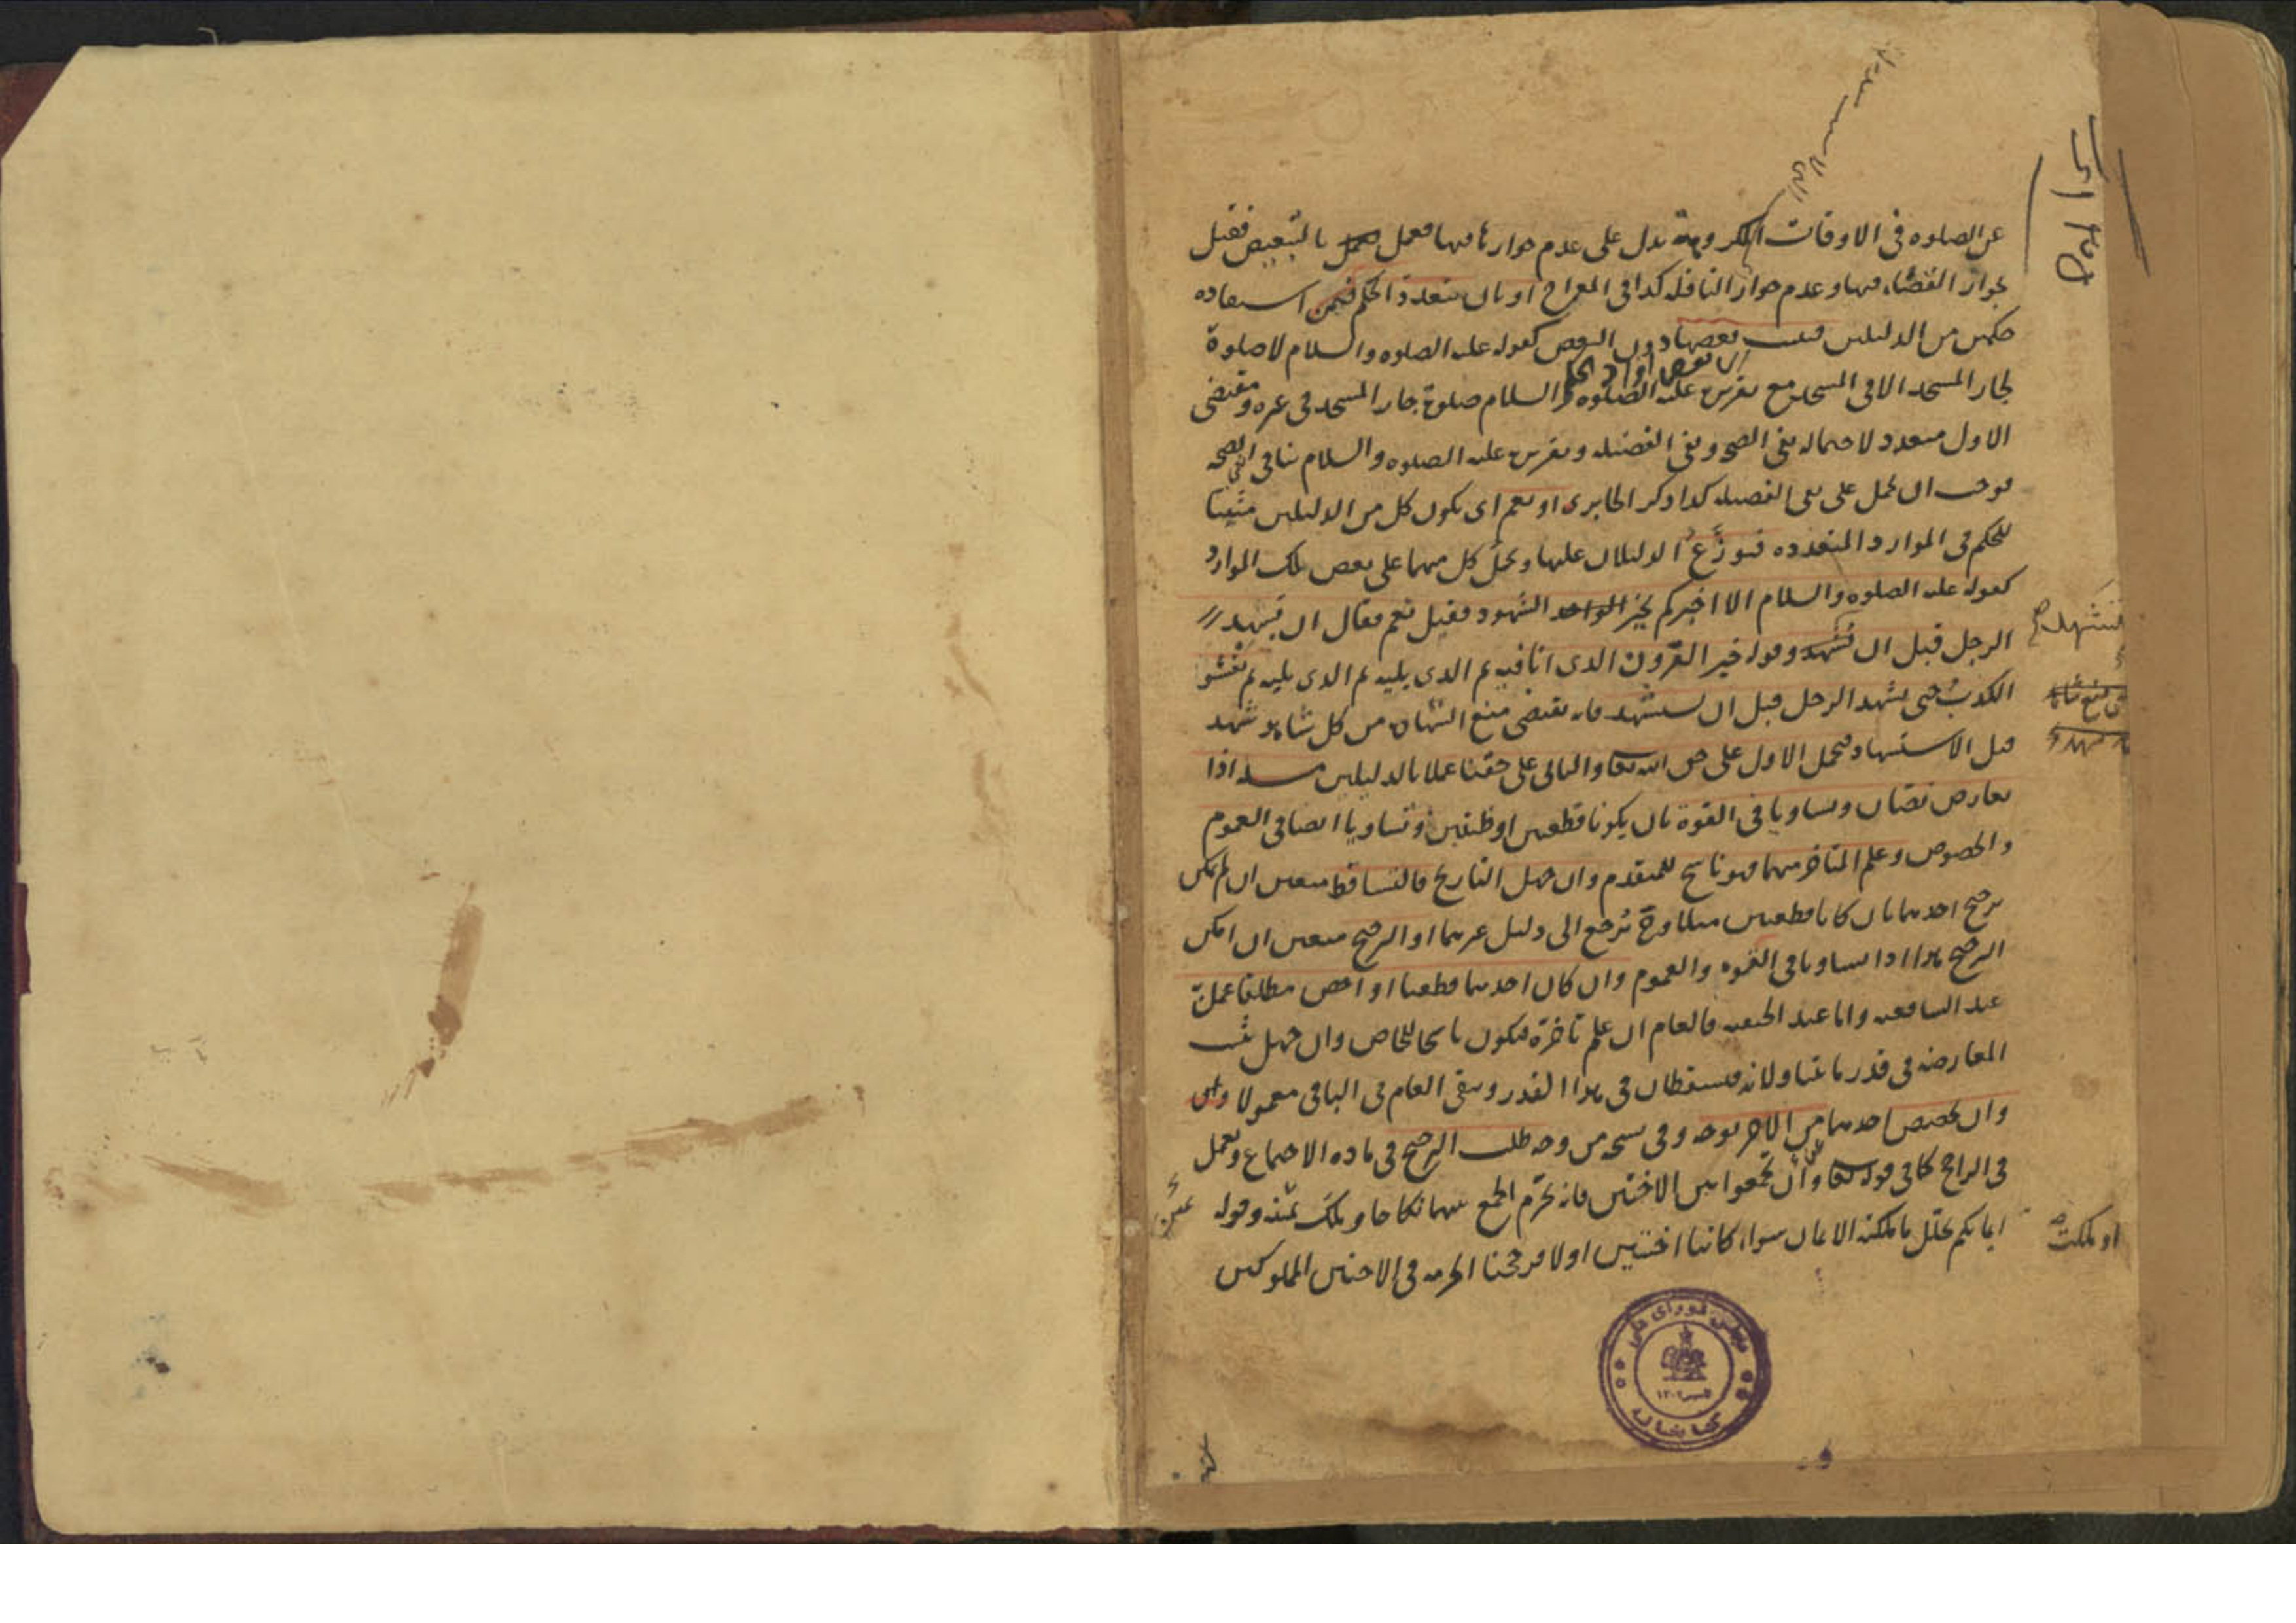 عن الصلوه فى الاوقات المكروهة يدل على عدم جوازها فيها فيعمل بالتبعيض فقيل
بجواز القضاء فيها وعدم جواز النافله كذا فى المعراج او بان يتعدد الحكم فيمكن استفاده
حكمين من الدليلين فيثبت بعضها دون البعض كقوله عليه الصلوه والسلام لا صلوة
اى بعض افراد الحكم
لجار المسجد الا فى المسجد مع تقريره عليه الصلوه والسلام صلوة جار المسجد فى غيره ومقتضى
الاول متعدد لاحتماله نفى الصحه ونفى الفضيله وتقريره عليه الصلوه والسلام ينافى نفى الصحه
فوجب ان يحمل على نفى الفضيله كذا ذكر الجابردى او يعم اى يكون كل من الدليلين مثبتا
للحكم فى الموارد المتعدده فيوزّع الدليلان عليها ويحمل كل منهما على بعض تلك الموارد
كقوله عليه الصلوه والسلام الا اخبركم بخير الشهود فقيل نعم فقال ان يشهد
الرجل قبل ان يستشهد وقوله خير القرون الذى انا فيه ثم الذى يليه ثم الذى يليه ثم يفشو
الكذب حتى يشهد الرجل قبل ان يستشهد فانه يقتضى منع الشهاده من كل شاهد شهد
قبل الاستشهاد فيحمل الاول على حق الله تعا والثانى على حقنا عملا بالدليلين مسئله اذا
تعارض نصّان وتساويا فى القوة بان يكونا قطعيين او ظنيين وتساويا ايضا فى العموم
والخصوص وعلم المتاخر منهما فهو ناسخ للمتقدم وان جهل التاريخ فالتساقط متعين ان لم يمكن
ترجيح احدهما بان كانا قطعيين مثلا وح يُرجع الى دليل غيرهما او الترجيح متعين ان امكن
الترجيح هذا اذا تساويا فى القوه والعموم وان كان احدهما قطعيا او اخص مطلقا عمل به
عند الشافعيه واما عند الحنفيه فالعام ان علم تاخره فيكون ناسخا للخاص وان جهل يثبت
المعارضه فى قدر ما تناولاه فيسقطان فى هذا القدر ويبقى العام فى الباقى معمولا
وان تخصص احدهما من الاخر بوجه وفى نسخه من وجه طلب الترجيح فى ماده الاجتماع ويعمل
فى الراجح كما فى قوله تعا وان تجمعوا بين الاختين فانه يحرّم الجمع بينهما نكاحا وملك يمين وقوله
او ما ملكت
ايمانكم يحلّل ما ملكته الايمان سواء كانتا اختين او لا فرجحنا الحرمه فى الاختين المملوكتين
مجلس شورای ملی
کتابخانه